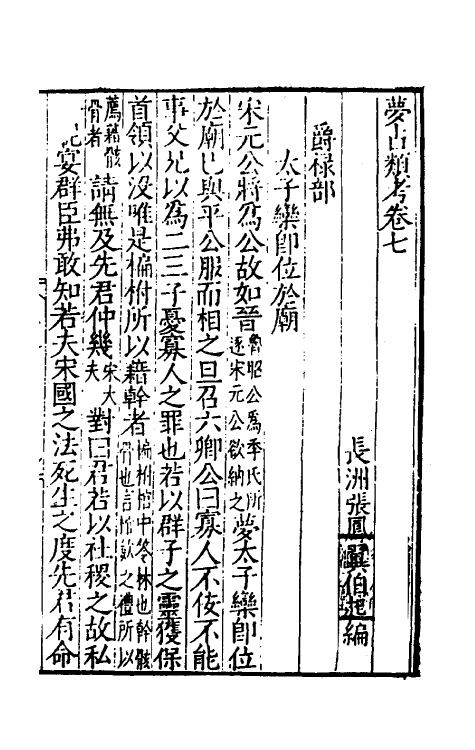 夢占類考卷七
長洲張鳳翼伯起編
爵祿部
太子欒即位於廟
宋元公將爲公故如晉魯昭公爲季氏所逐宋元公欲納之夢太子欒即位
於廟已與平公服而相之旦召六卿公曰寡人不佞不能
事父兄以爲二三子憂寡人之罪也若以群子之靈獲保
首領以没唯是楄柎所以藉幹者楄柎棺中笭牀也幹骸骨也言棺歛之禮所以
薦藉骸骨者請無及先君仲幾宋大夫對曰君若以社稷之故私
宴群臣弗敢知若夫宋國之法死生之度先君有命